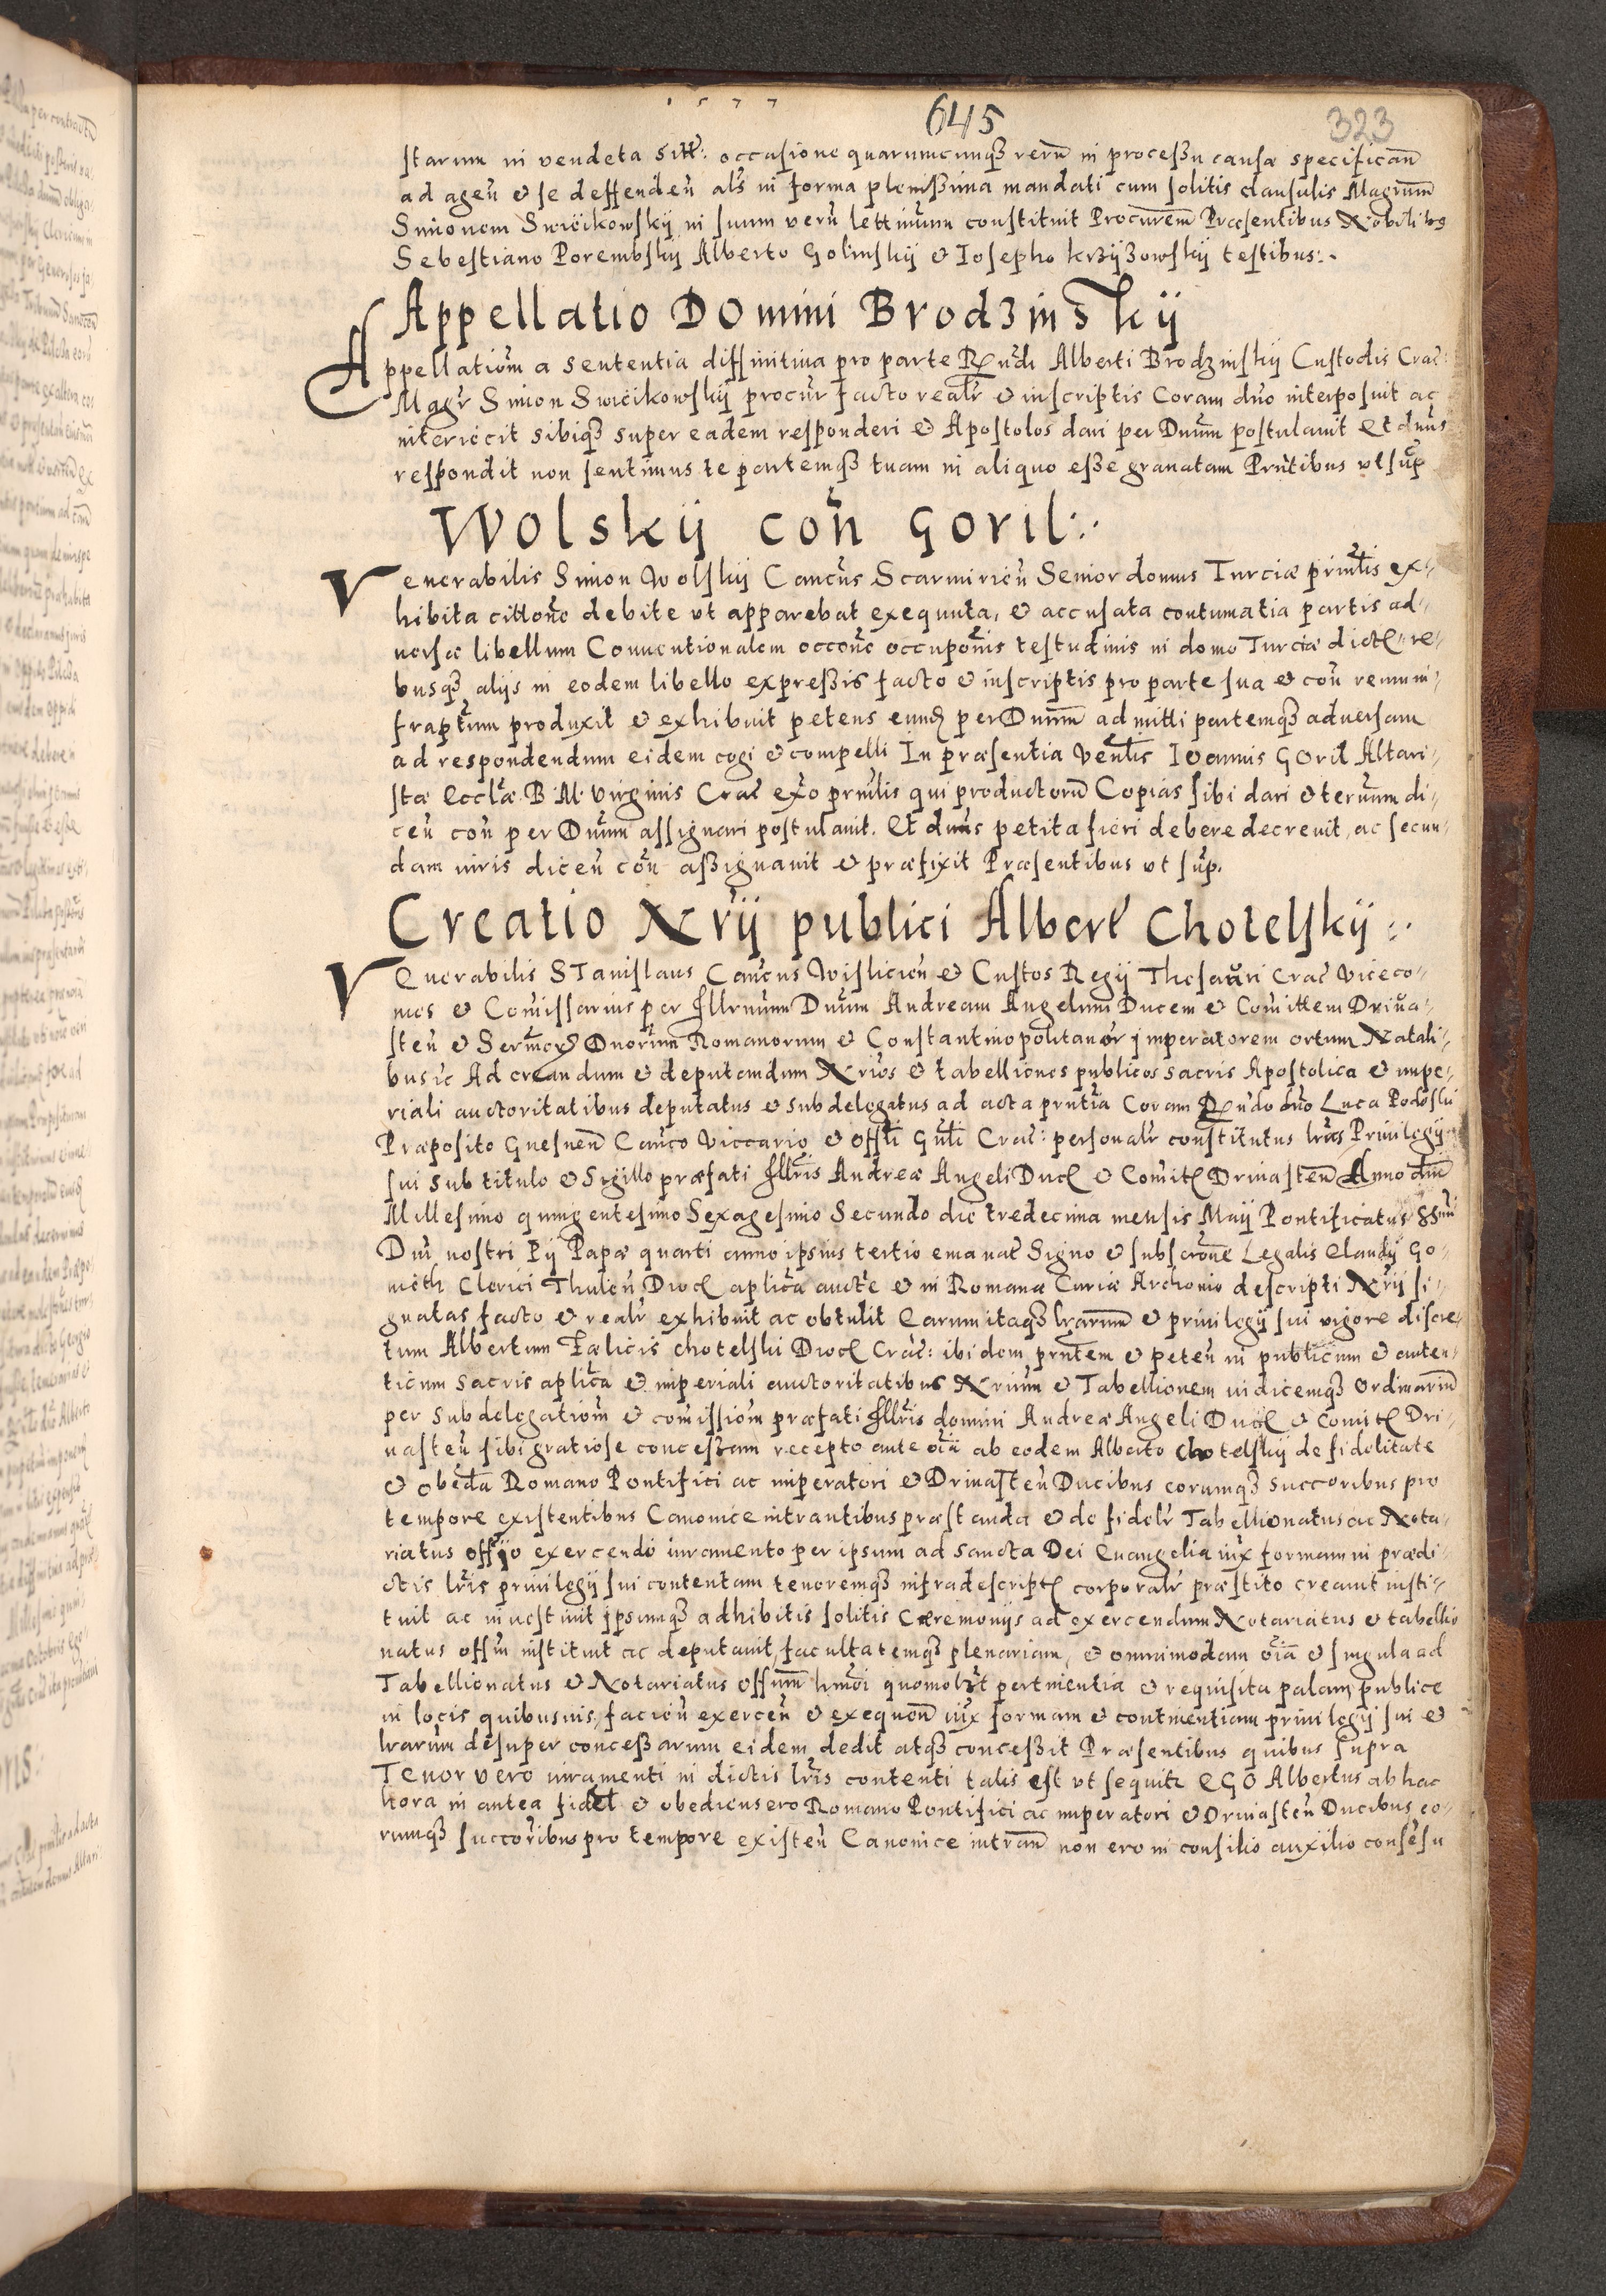 1577
645
323
starum in vendeta sitt: occasione quarumcunqȝ rerū in processu causæ specifican̄
ad agen̄ & se deffenden̄ als in forma plenissima mandati cum solitis clausulis Magrum̄
Simonem Swiēikowskÿ in suum verū lettimum constituit Procurem̄ Præsentibus Nobilibus
Sebestiano Porembskÿ Alberto Golinskÿ & Iosepho krzÿzowskÿ testibus:
Appellatio DOmini Brodzinskÿ
Appellationē a sententia diffinitiva pro parte Rṅdi Alberti Brodzinskÿ Custodis Crac:
Magr Simon Swiēikowskÿ procur facto realr & inscriptis Coram dno interposuit ac
interiecit sibiqȝ super eadem responderi & Apostolos dari per Dnum postulavit Et dnus
respondit non sentimus te partemqȝ tuam in aliquo esse gravatam Prntibus vt sup
Wolskÿ con̄ Goril:
Venerabilis Simon Wolskÿ Cancus Scarmirien̄ Senior domus Turciæ prīnlis ex-
hibita cittone debite vt apparebat exequuta, & accusata contumatia partis ad-
uersæ libellum Conuentionalem occone occuponis testudinis in domo Turciæ dictę re-
busqȝ alijs in eodem libello expressis facto & inscriptis pro parte sua & con̄
produxit & exhibuit petens eund per Dnum admitti partemqȝ aduersam
ad respondendum eidem cogi & compelli In præsentia Venlis IOannis GOril Altari-
stæ Ecclæ B. M. Virginis Crac exo prnilis qui productorū Copias sibi dari & ternum di-
cen̄ con̄ per Dnum assignari postulavit. Et dnus petita fieri debere decrevit, ac secun-
dam iuris dicen̄ con̄ assignauit & præfixit Præsentibus vt sup.
Creatio Nrij publici Albert Chotelskÿ
VEnerabilis STanislaus Cancus Wislicien̄ & Custos Regij Thesauri Crac Viceco-
mes & Comissarius per Illrmum Dnum Andream Angelum Ducem & Comittem Driua-
sten̄ & Dnorum Romanorum & Constantinopolitanor imperatorem ortum Natali-
bus ic Ad creandum & deputandum Nrios & tabelliones publicos sacris Apostolica & impe-
riali auctoritatibus deputatus & subdelegatus ad acta prntia Coram Rndo dno Luca Podoski
Præposito Gnesnen̄ Canco Viccario & offli Gnli Crac: personalr constitutus lras Priuilegij
sui sub titulo & Sigillo præfati Illris Andreæ Angeli Ducę & Comitę Driuasten̄ Anno dni
Millesimo quingentesimo Sexagesimo Secundo die tredecima mensis Maij Pontificatus SSmi
Dni nostri Pij Papæ quarti anno ipsius tertio emanat Signo & subscrone Legalis Claudij Go-
meth Clerici Thulen̄ Diocę aplica aucte & in Romanæ Curiæ Archiuio descripti Nrij si-
gnatas facto & realr exhibuit ac obtulit Earum itaqȝ lrarum̄ & priuilegij sui vigore discre-
tum Albertum Fælicis chotelski Diocę Crac: ibidem prntem & peten̄ in publicum & auten-
ticum sacris aplica & imperiali auctoritatibus Nrium & Tabellionem iudicemqȝ ordinariū
per subdelegationē & comissionē præfati Illris domini Andreæ Angeli Ducę & Comitę Dri-
uasten̄ sibi gratiose concessam recepto ante oia ab eodem Alberto Chotelskÿ de fidelitate
& obedia Romano Pontifici ac imperatori & Driuasten̄ Ducibus eorumqȝ succoribus pro
tempore existentibus Canonice intrantibus præstanda & de fidelr Tabellionatus ac Nota-
riatus offijo exercendo iuramento per ipsum ad sancta Dei Euangelia iux formam in prædi-
ctis lris priuilegij sui contentam tenoremqȝ infradescriptę corporalr præstito creauit insti-
tuit ac inuestiuit ipsumqȝ adhibitis solitis Cæremonijs ad exercendum Notariatus & tabellio
natus offm instituit ac deputauit, facultatemqȝ plenariam, & omnimodam oia & singula ad
Tabellionatus & Notariatus offum hmoi quomolt pertinentia & requisita palam publice
in locis quibusuis, facien̄ exercen̄ & exequen̄ iux formam & continentiam priuilegij sui &
lrarum desuper concessarum eidem dedit atqȝ concessit Præsentibus quibus supra
TEnor vero iuramenti in dictis lris contenti talis est vt sequitr EGO Albertus ab hac
hora in antea fidel & obediens ero Romano Pontifici ac imperatori & Driuasten̄ Ducibus eo-
rumqȝ succoribus pro tempore existen̄ Canonice intran̄ non ero in consilio auxilio consesu